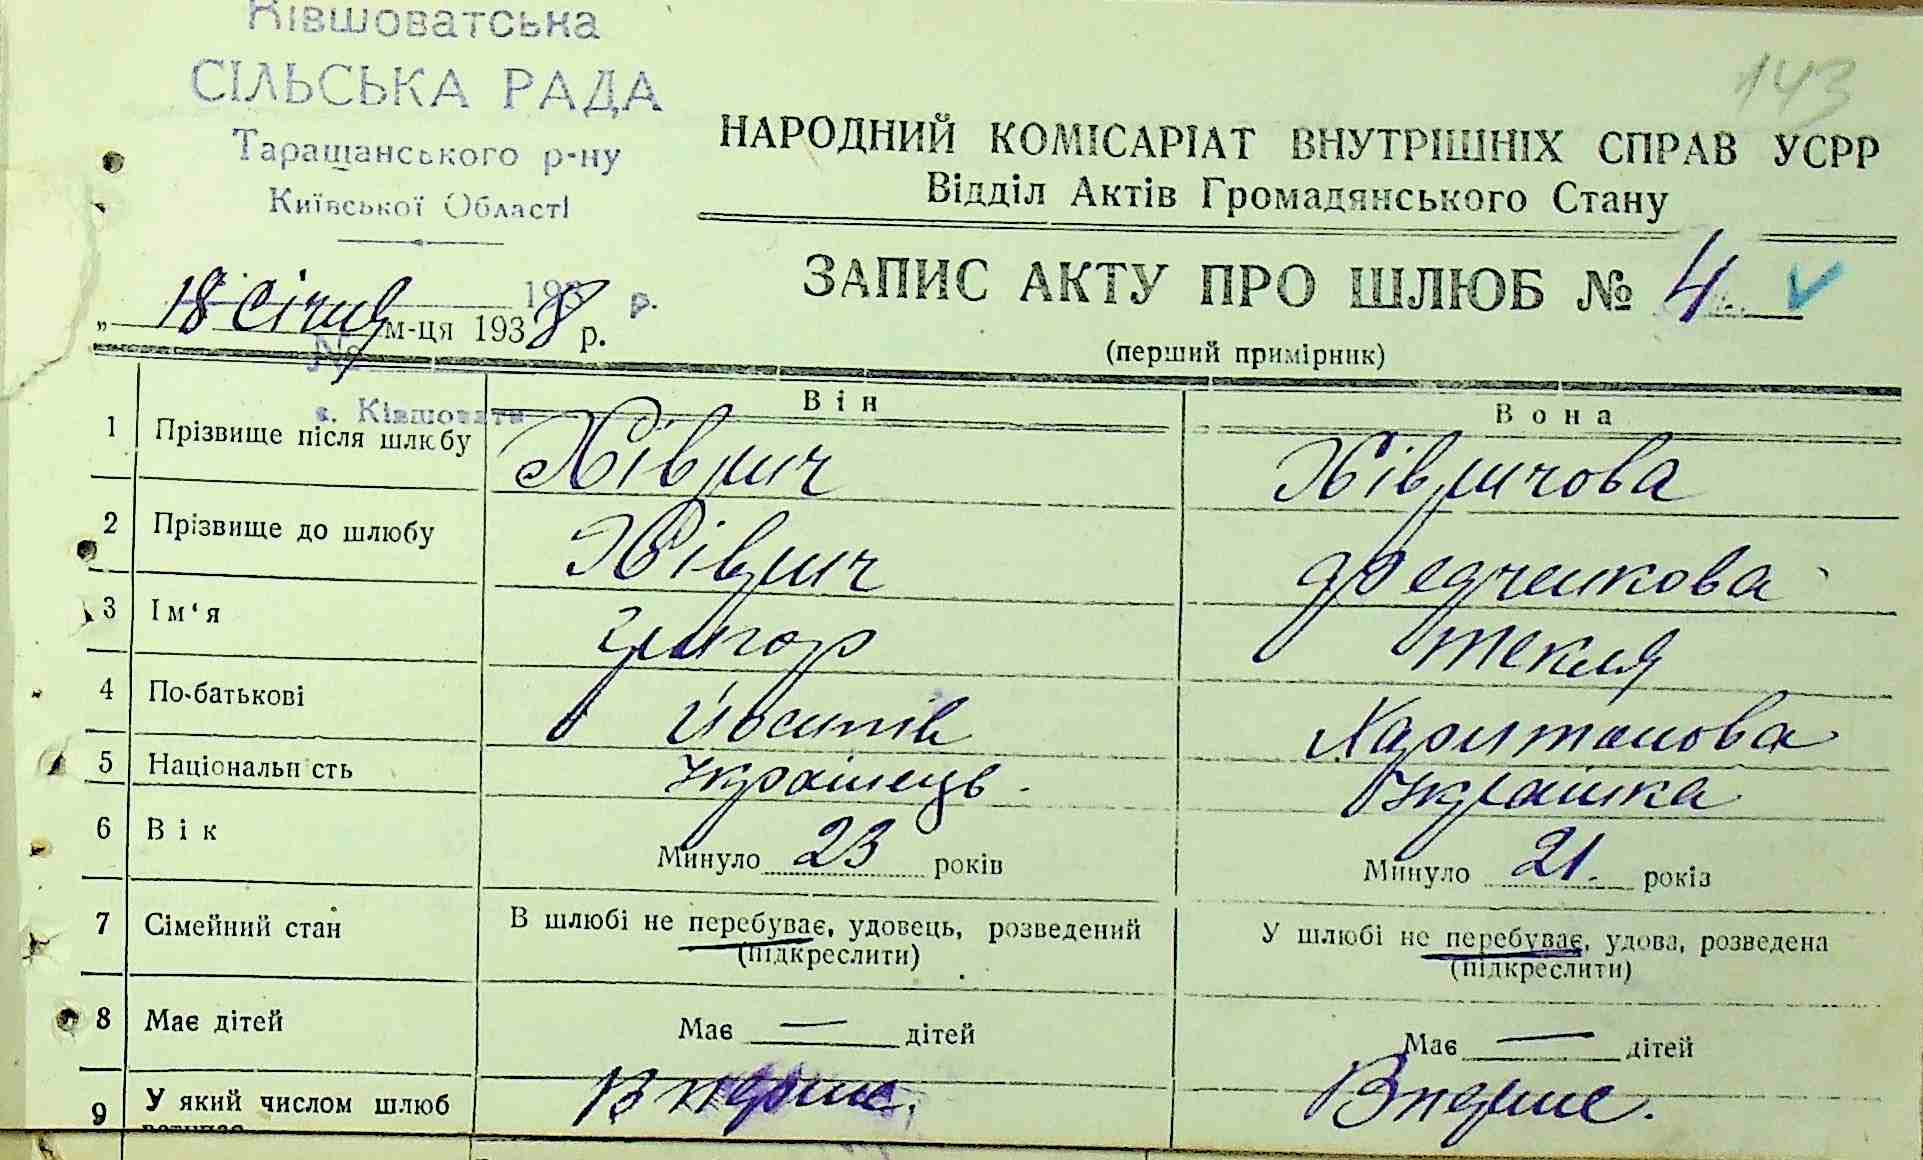 Ківшоватська
СІЛЬСЬКА РАДА
Таращанського р-ну
Київської Області
143
НАРОДНИЙ КОМІСАРІАТ ВНУТРІШНІХ СПРАВ УСРР
Відділ Актів Громадянського Стану
ЗАПИС АКТУ ПРО ШЛЮБ № 4
(перший примірник)
193 р.
„ 18 Січня м-ця 1938 р.
№
с. Ківшовата
Він Вона
1 Прізвище після шлюбу Хіврич Хівричова
2 Прізвище до шлюбу Хіврич Федченкова
3 Ім‘я Григор Текля
4 По-батькові Йосипів Харитонова
5 Національн сть Українець Українка
6 Вік Минуло 23 років Минуло 21. років
7 Сімейний стан В шлюбі не перебуває, удовець, розведений У шлюбі не перебуває, удова, розведена
(підкреслити) (підкреслити)
8 Має дітей Має — дітей Має — дітей
9 У який числом шлюб Вперше. Вперше.